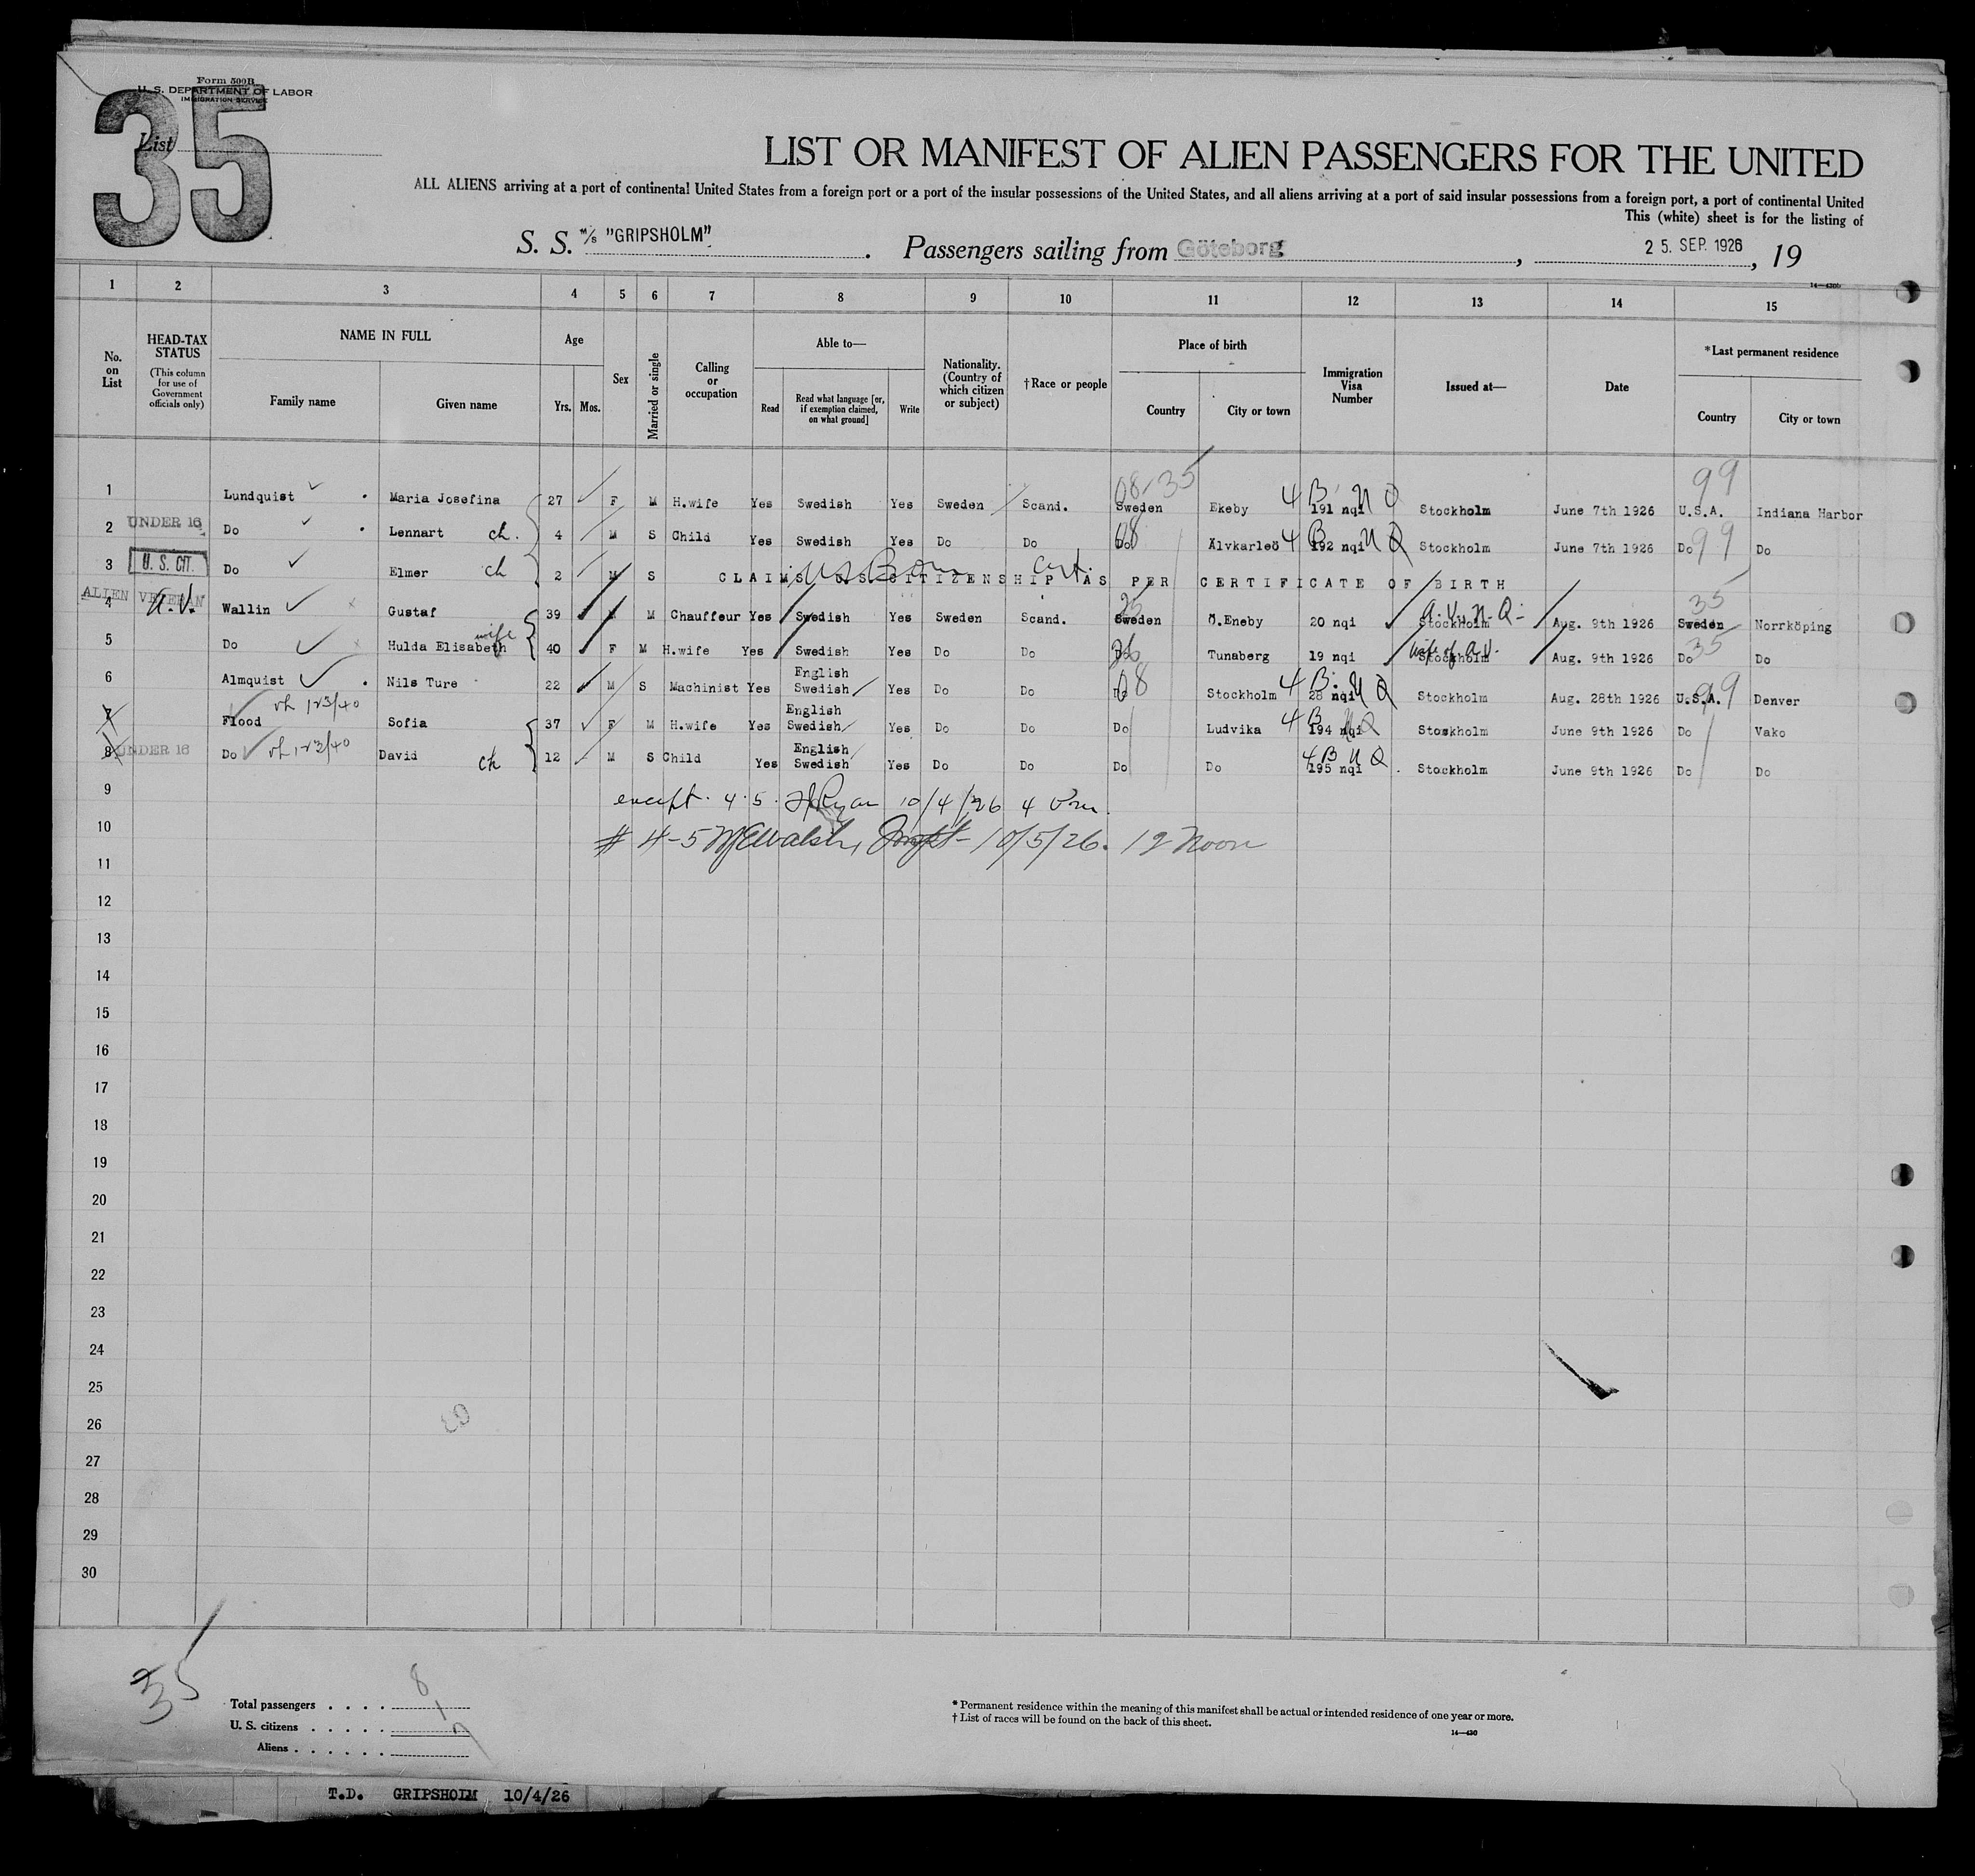 Form 500B
U. S. DEPARTMENT OF LABOR
IMMIGRATION SERVICE
35
List
LIST OR MANIFEST OF ALIEN PASSENGERS FOR THE UNITED
ALL ALIENS arriving at a port of continental United States from a foreign port or a port of the insular possessions of the United States, and all aliens arriving at a port of said insular possessions from a foreign port, a port of continental United
This (white) sheet is for the listing of
S. S. M/S "GRIPSHOLM". Passengers sailing from Göteborg, 25. SEP. 1926, 19
14—430b
1 2 3 4 5 6 7 8 9 10 11 12 13 14 15
No. on List
HEAD-TAX STATUS
(This column for use of Government officials only)
NAME IN FULL
Family name
Given name
Age
Yrs. Mos.
Sex
Married or single
Calling or occupation
Able to—
Read
Read what language [or, if exemption claimed, on what ground]
Write
Nationality. (Country of which citizen or subject)
†Race or people
Place of birth
Country
City or town
Immigration Visa Number
Issued at—
Date
*Last permanent residence
Country
City or town
08-35 99
1 Lundquist Maria Josefina 27 F M H.wife Yes Swedish Yes Sweden Scand. Sweden Ekeby 4 B N Q 191 nqi Stockholm June 7th 1926 U.S.A. Indiana Harbor
2 UNDER 16 Do Lennart ch. 4 M S Child Yes Swedish Yes Do Do Do 08 Älvkarleö 4 B 192 nqi N Q Stockholm June 7th 1926 Do 99 Do
3 U. S. CIT. Do Elmer ch 2 M S CLAIMS U.S. CITIZENSHIP AS PER CERTIFICATE OF BIRTH
US Born Cert.
ALIEN VETERAN
4 A.V. Wallin Gustaf 39 M M Chauffeur Yes Swedish Yes Sweden Scand. Sweden Ö.Eneby 20 nqi Stockholm A.V. N.Q. Aug. 9th 1926 Sweden 35 Norrköping
5 Do Hulda Elisabeth wife 40 F M H.wife Yes Swedish Yes Do Do Do Tunaberg 19 nqi Stockholm wife of A.V. Aug. 9th 1926 Do 35 Do
6 Almquist Nils Ture 22 M S Machinist Yes English Swedish Yes Do Do Do 08 Stockholm 4 B. N Q 28 nqi Stockholm Aug. 28th 1926 U.S.A. 99 Denver
7 Flood Sofia 37 F M H.wife Yes English Swedish Yes Do Do Do Ludvika 4 B N Q 194 nqi Stockholm June 9th 1926 Do Vako
8 UNDER 16 Do David ch 12 M S Child Yes English Swedish Yes Do Do Do Do 4 B N Q 195 nqi Stockholm June 9th 1926 Do Do
9 except. 4.5. Ryan 10/4/26 4 pm.
10 # 4-5 Walsh, Inspt- 10/5/26. 12 Noon
11
12
13
14
15
16
17
18
19
20
21
22
23
24
25
26
27
28
29
30
35
Total passengers . . . . 8
U. S. citizens . . . . . 1
Aliens . . . . . . 7
* Permanent residence within the meaning of this manifest shall be actual or intended residence of one year or more.
† List of races will be found on the back of this sheet.
14—430
T.D. GRIPSHOLM 10/4/26